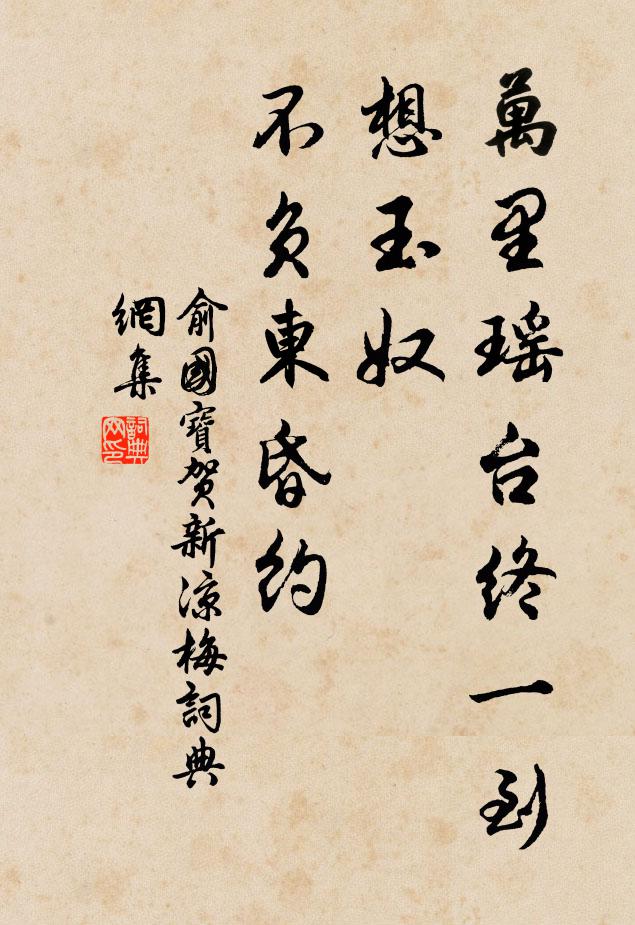 萬里瑶台终一到
想玉奴
不負東昏約
俞國寶賀新涼梅詞典
網集
詞典
网印